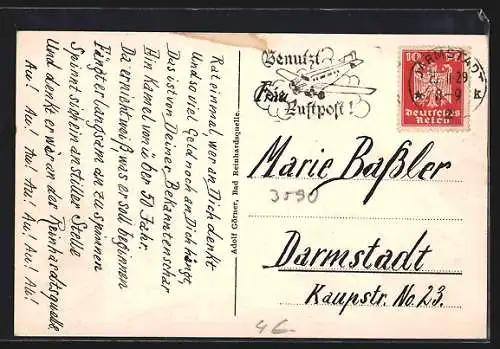 Rat einmal, wer an Dich denkt
Und so viel Geld noch an Dich hängt,
Das ist von Deiner Bekanntenschar
Ein Kamel von über 50 Jahr.
Da er nicht weiß was er soll beginnen
Fängt er langsam an zu spinnen
Spinnt sich ein an stiller Stelle
Und denkt er wär an der Reinhardtsquelle.
Au! Au! Au! Au! Au! Au! Au!
Adolf Görner, Bad Reinhardsquelle.
Benutzt
Frau
Luftpost!
DARMSTADT
29
8-9
K
10 10
Deutsches
Reich
Marie Baßler
3590
Darmstadt
Kaupstr. No. 23.